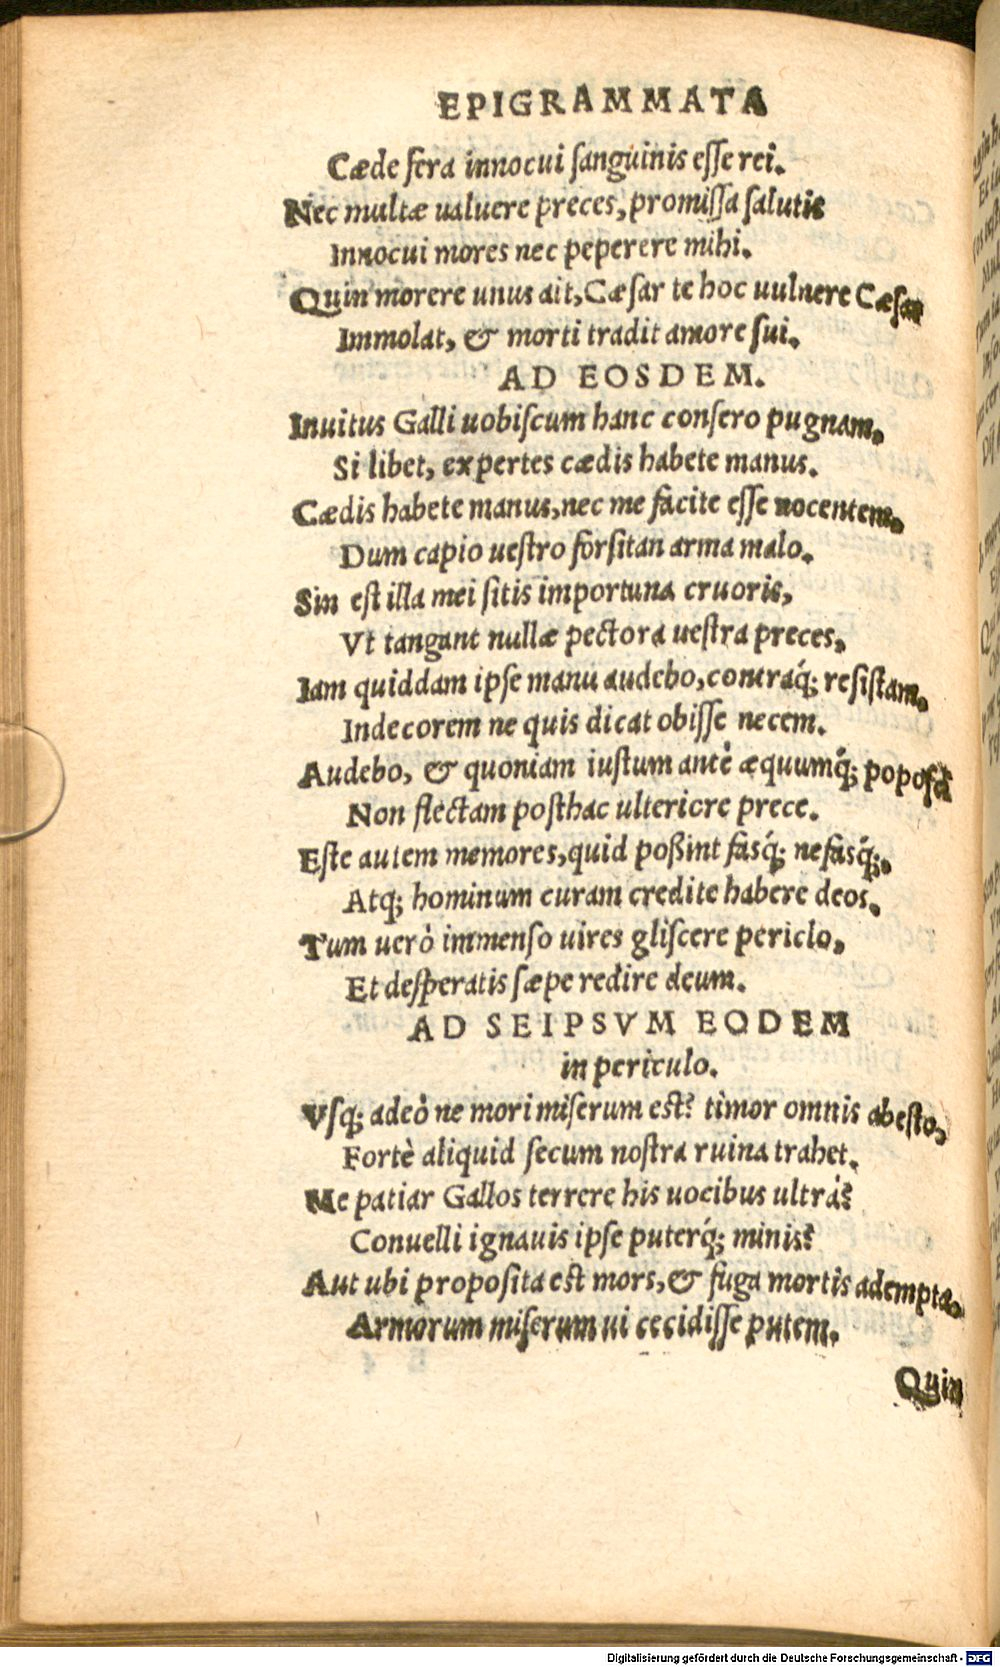 EPIGRAMMATA
Cæde fera innocui ſanguinis eſſe rei.
Nec multæ ualuere preces, promiſſa ſalutis
Innocui mores nec peperere mihi.
Quin morere unus ait, Cæſar te hoc uulnere Cæſar
Immolat, & morti tradit amore ſui.
AD EOSDEM.
Inuitus Galli uobiſcum hanc conſero pugnam,
Si libet, expertes cædis habete manus.
Cædis habete manus, nec me facite eſſe nocentem,
Dum capio ueſtro forſitan arma malo.
Sin eſt illa mei ſitis importuna cruoris,
Vt tangant nullæ pectora ueſtra preces,
Iam quiddam ipſe manu audebo, contraq́; reſiſtam,
Indecorem ne quis dicat obiſſe necem.
Audebo, & quoniam iuſtum antè æquumq́; popoſci
Non flectam poſthac ulteriore prece.
Eſte autem memores, quid poßint faſq́; nefaſq́;,
Atq; hominum curam credite habere deos.
Tum uerò immenſo uires gliſcere periclo,
Et deſperatis ſæpe redire deum.
AD SEIPSVM EODEM
in periculo.
Vſq; adeò ne mori miſerum eſt? timor omnis abeſto,
Fortè aliquid ſecum noſtra ruina trahet.
Me patiar Gallos terrere his uocibus ultrà?
Conuelli ignauis ipſe puterq́; minis?
Aut ubi propoſita eſt mors, & fuga mortis adempta,
Armorum miſerum ui cecidiſſe putem.
Quin
Digitalisierung gefördert durch die Deutsche Forschungsgemeinschaft - DFG